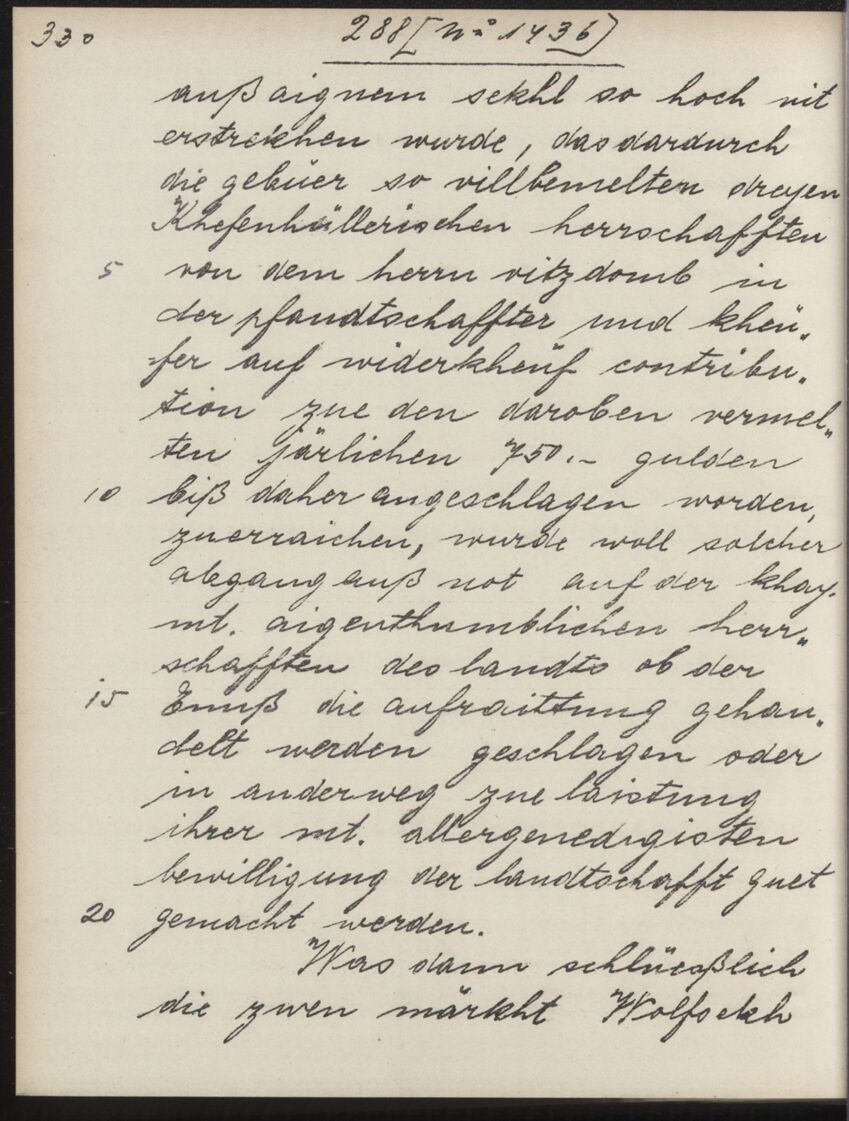 330 288 [No 1436]
auß aignem sekhl so hoch nit
erstrekhen wurde, das dardurch
die gebüer so villbemelten dreyen
Khefenhüllerischen herrschafften
5 von dem herrn vitzdomb in
der pfandtschaffter und kheü„
fer auf widerkheuf contribu„
tion zue den daroben vermel„
ten järlichen 750.– gulden
10 biß daher angeschlagen worden,
zuerraichen, wurde woll solcher
abgang auß not auf der khay.
mt. aigenthumblichen herr„
schafften des landts ob der
15 Ennß die aufraittung gehan„
delt werden geschlagen oder
in anderweg zue laistung
ihrer mt. allergenedigisten
bewilligung der landtschafft guet
20 gemacht werden.
Was dann schlüeßlich
die zwen märkht Wolfsekh